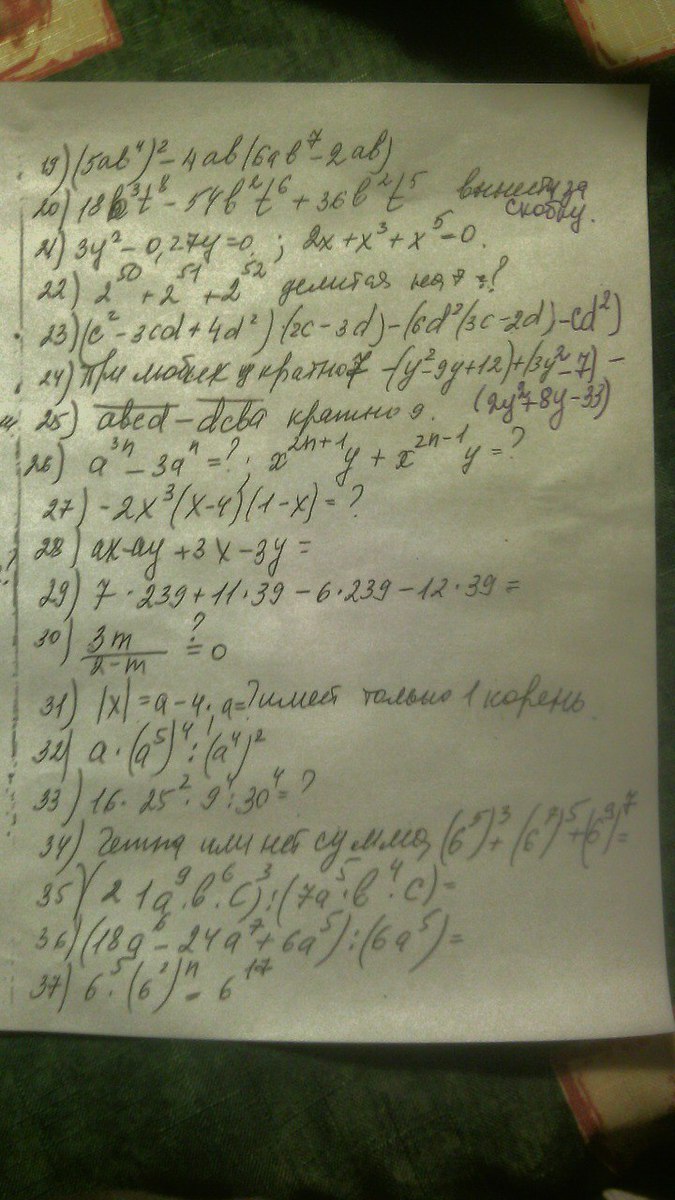 19) (5ab⁴)² - 4ab(6ab⁷ - 2ab)
20) 18b³t⁸ - 54b²t⁶ + 36b²t⁵ вынести за скобку.
21) 3y² - 0,27y = 0 ; 2x + x³ + x⁵ = 0.
22) 2⁵⁰ + 2⁵¹ + 2⁵² делится на 7 = ?
23) (c² - 3cd + 4d²)(2c - 3d) - (6d²(3c - 2d) - cd²)
24) При любых y кратно 7 -(y² - 9y + 12) + (3y² - 7) -
(2y² + 8y - 33)
25) abcd - dcba кратно 9.
26) a³ⁿ - 3aⁿ = ? ; x²ⁿ⁺¹y + x²ⁿ⁻¹y = ?
27) -2x³(x - 4)(1 - x) = ?
28) ax - ay + 3x - 3y =
29) 7 · 239 + 11 · 39 - 6 · 239 - 12 · 39 =
30) 3m/(2-m) =? 0
31) |x| = a - 4. a = ? имеет только 1 корень.
32) a · (a⁵)⁴ : (a⁴)²
33) 16 · 25² · 9⁴ : 30⁴ = ?
34) Четна или нет сумма (6⁵)³ + (6⁷)⁵ + (6⁹)⁷ =
35) (21a⁹·b⁶·c³) : (7a⁵·b⁴·c) =
36) (18a⁶ - 24a⁷ + 6a⁵) : (6a⁵) =
37) 6⁵ · (6²)ⁿ = 6¹⁷